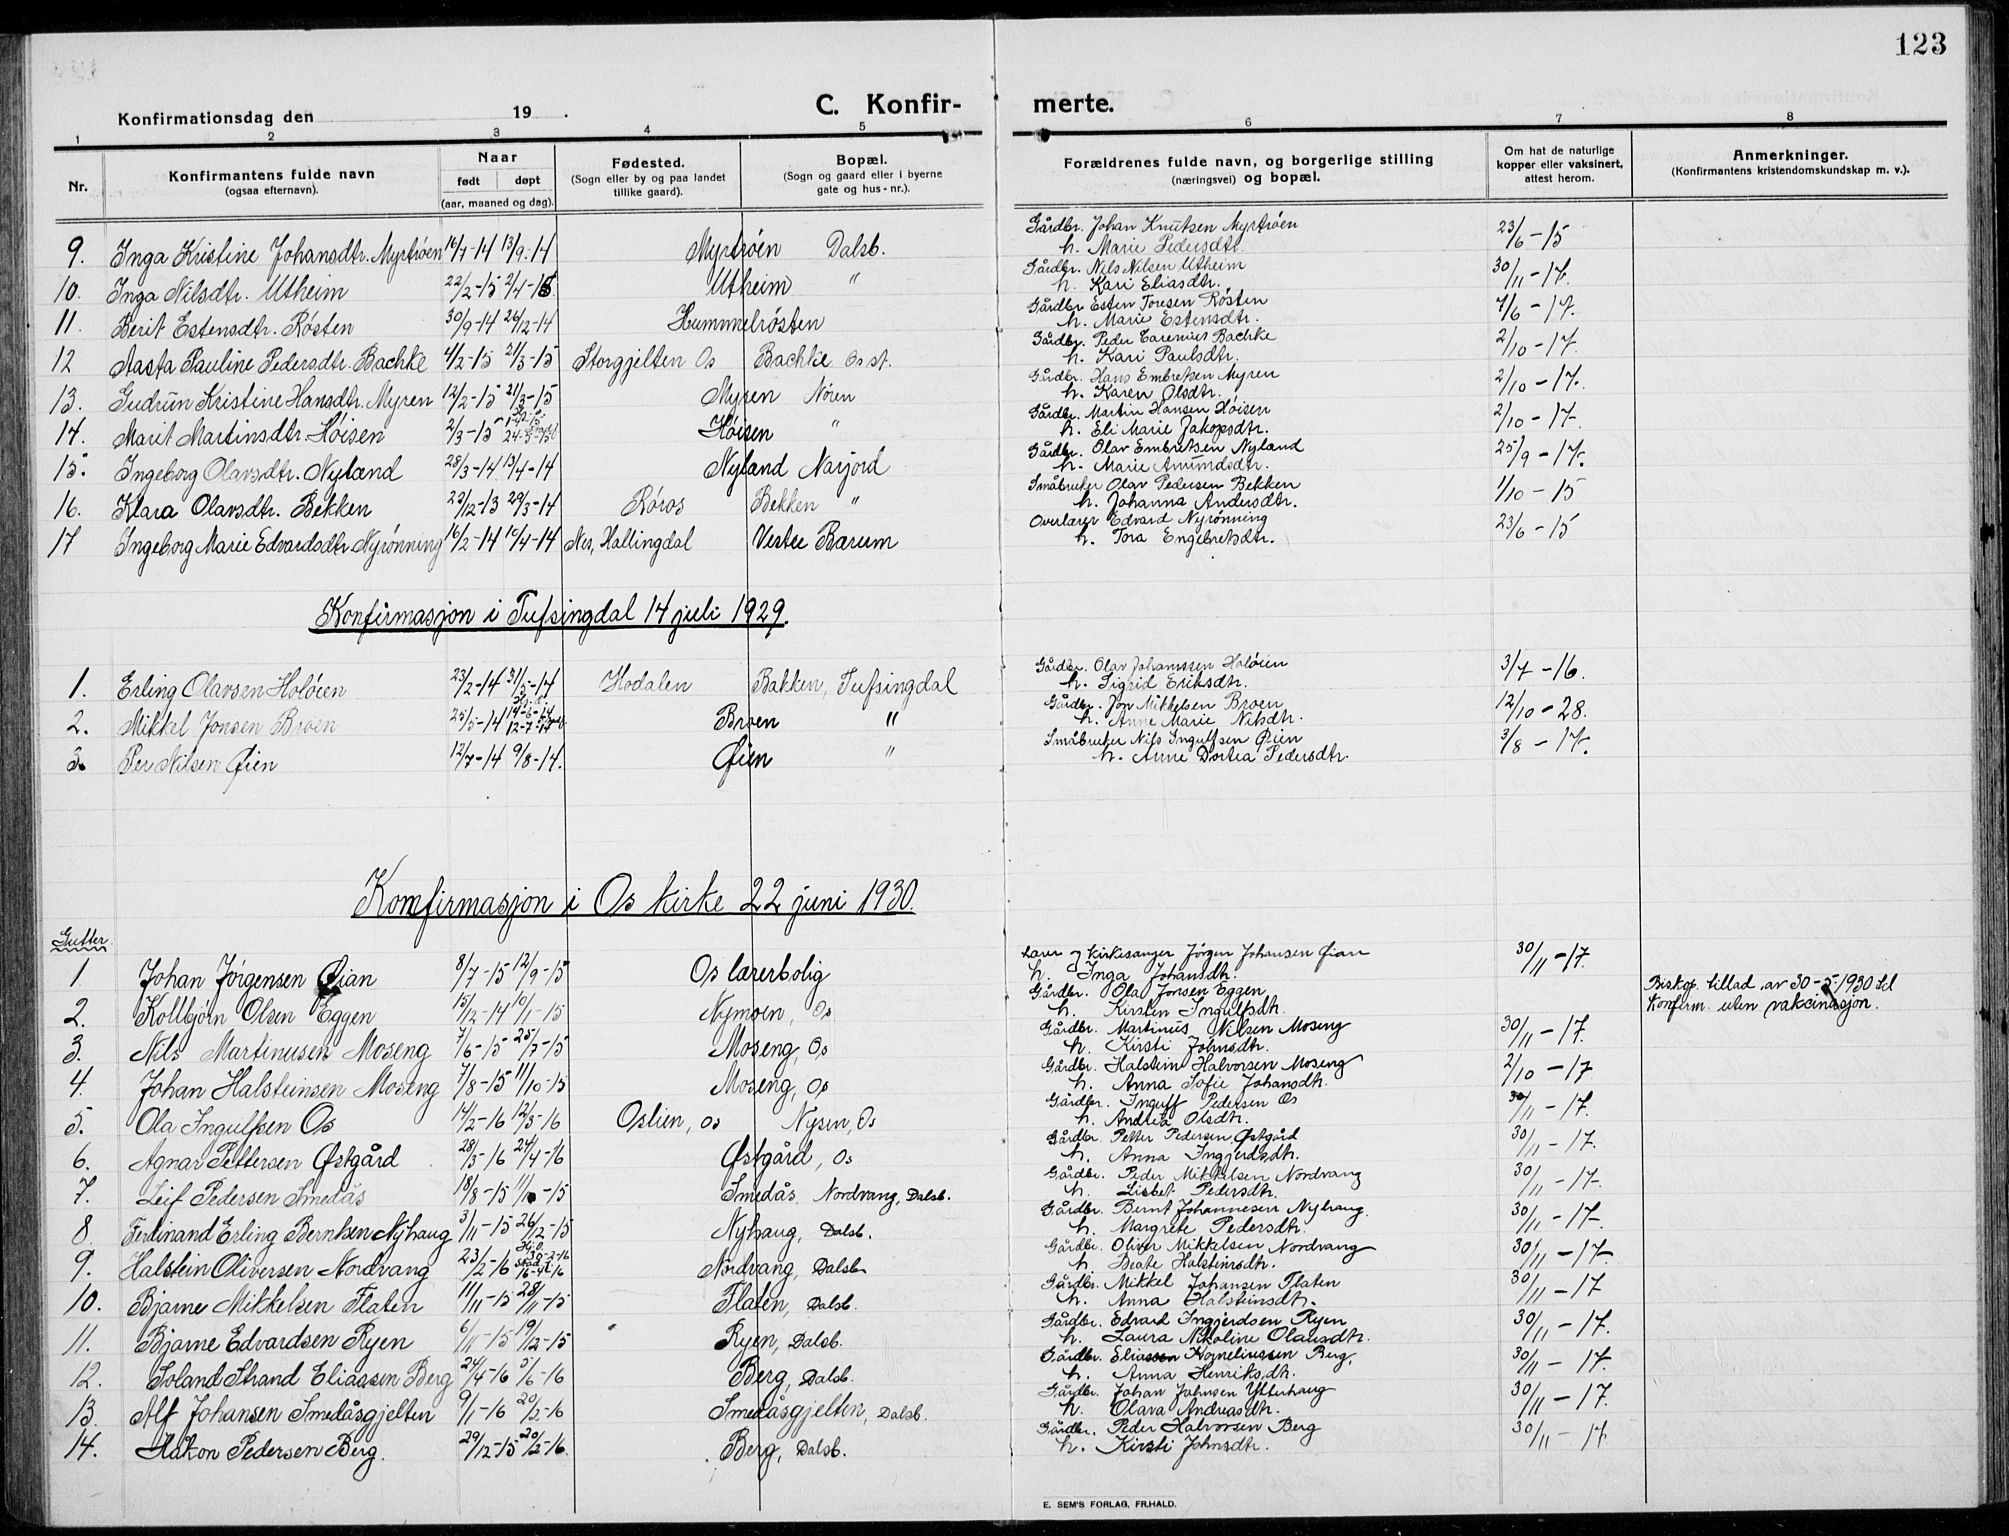 123
Konfirmationsdag den 19 .
C. Konfir- merte.
1 2 3 4 5 6 7 8
Nr. Konfirmantens fulde navn (ogsaa efternavn). Naar født døpt (aar, maaned og dag). Fødested. (Sogn eller by og paa landet tillike gaard). Bopæl. (Sogn og gaard eller i byerne gate og hus-nr.). Forældrenes fulde navn, og borgerlige stilling (næringsvei) og bopæl. Om hat de naturlige kopper eller vaksinert, attest herom. Anmerkninger. (Konfirmantens kristendomskundskap m. v.).
9. Inga Kristine Johansdtr. Myrtrøen 16/7-14 13/9-14 Myrtrøen Dalsb. Gårdbr. Johan Knutsen Myrtrøen h. Marie Pedersdtr. 23/6-15
10. Inga Nilsdtr. Utheim 22/2-15 2/4-15 Utheim " Gårdbr. Nils Nilsen Utheim h. Kari Eliasdtr. 30/11-17.
11. Berit Estensdtr. Røsten 30/9-14 26/12-14 Hummelrøsten Gårdbr. Esten Toresen Røsten h. Marie Estensdtr. 7/6-17.
12 Aasta Pauline Pedersdtr. Bachke 4/2-15 21/3-15 Storgjelten Os Bachke Os st. Gårdbr. Peder Bachke h. Kari Paulsdtr. 2/10-17.
13. Gudrun Kristine Hansdtr. Myren 12/2-15 21/3-15 Myren Nøren Gårdbr. Hans Embretsen Myren h. Karen Olsdtr. 2/10-17.
14. Marit Martinsdtr. Høisen 2/3-15 24-5-15 Høisen " Gårdbr. Martin Hansen Høisen h. Eli Marie Jakopsdtr. 2/10-17.
15. Ingeborg Olavsdtr. Nyland 28/3-14 13/4-14 Nyland Narjord Gårdbr. Olav Embretsen Nyland h. Marie Amundsdtr. 25/9-17.
16. Klara Olavsdtr. Bekken 22/12-13 29/3-14 Røros Bekken " Småbruker Olav Pedersen Bekken h. Johanna Andersdtr. 1/10-15
17 Ingeborg Marie Edvardsdtr Nyrønning 16/2-14 10/4-14 Nes, Hallingdal Vestre Bærum Overlærer Edvard Nyrønning h. Tora Engebretsdtr. 23/6-15
Konfirmasjon i Tufsingdal 14 juli 1929.
1. Erling Olavsen Holøien 23/2-14 31/5-14 Hodalen Bakken, Tufsingdal Gårdbr. Olav Johannssen Holøien h. Sigrid Eriksdtr. 3/7-16.
2. Mikkel Jonsen Broen 25/5-14 14-6-14 12-7-14 Broen " Gårdbr. Jon Mikkelsen Broen h. Anne Marie Nilsdtr. 12/10-28.
3. Per Nilsen Øien 12/7-14 9/8-14. Øien " Småbruker Nils Ingulfsen Øien h. Anne Dortea Pedersdtr. 3/8-17.
Konfirmasjon i Os kirke 22 juni 1930.
Gutter.
1 Johan Jørgensen Øian 8/7-15 12/9-15 Os lærerbolig Lærer og kirkesanger Jørgen Johansen Øian h. Inga Johansdtr. 30/11-17.
2. Kolbjørn Olsen Eggen 15/12-14 10/1-15 Nymoen, Os Gårdbr. Ola Jonsen Eggen h. Kirsten Ingulfsdtr. Biskop. tillad. av 30-5-1930 til konfirm. uten vakcinasjon.
3. Nils Martinusen Moseng 7/6-15 25/7-15 Moseng, Os Gårdbr. Martinus Nilsen Moseng h. Kirsti Johnsdtr. 30/11-17.
4. Johan Halsteinsen Moseng 7/8-15 11/10-15 Moseng, Os Gårdbr. Halstein Halvorsen Moseng h. Anna Sofie Johansdtr. 2/10-17
5. Ola Ingulfsen Os 14/2-16 12/3-16 Oslien, Os Nysen, Os Gårdbr. Ingulf Pedersen Os h. Andrea Olsdtr. 30/11-17.
6. Agnar Pettersen Østgård 28/3-16 24/4-16 Østgård, Os Gårdbr. Petter Pedersen Østgård h. Anna Ingjerdsdtr. 30/11-17.
7. Leif Pedersen Smedås 18/8-15 11/10-15 Smedås Nordvang, Dalsb. Gårdbr. Peder Mikkelsen Nordvang h. Lisbet Pedersdtr. 30/11-17.
8. Ferdinand Erling Berntsen Nyhaug 3/11-15 26/12-15 Nyhaug, Dalsb. Gårdbr. Bernt Johannesen Nyhaug. h. Margrete Pedersdtr. 30/11-17.
9. Halstein Oliversen Nordvang 23/2-16 16-4-16 Nordvang, Dalsb. Gårdbr. Oliver Mikkelsen Nordvang h. Beate Halsteinsdtr. 30/11-17.
10. Bjarne Mikkelsen Flaten 11/11-15 28/11-15 Flaten, Dalsb. Gårdbr. Mikkel Johansen Flaten h. Anna Halsteinsdtr. 30/11-17
11. Bjarne Edvardsen Ryen 6/11-15 19/12-15 Ryen, Dalsb. Gårdbr. Edvard Ingjerdsen Ryen h. Laura Nikoline Olausdtr. 30/11-17.
12. Soland Strand Eliassen Berg 24/4-16 5/6-16 Berg, Dalsb. Gårdbr. Eliassen Korneliussen Berg. h. Anna Henriksdtr. 30/11-17.
13. Alf Johansen Smedåsgjelten 9/1-16 20/2-16 Smedåsgjelten, Dalsb. Gårdbr. Johan Johnsen Ytterhaug h. Olava Andreasdtr. 30/11-17.
14. Håkon Pedersen Berg. 29/12-15 20/2-16. Berg, Dalsb. Gårdbr. Peder Halvorsen Berg h. Kirsti Johnsdtr. 30/11-17.
E. SEM'S FORLAG, FR.HALD.